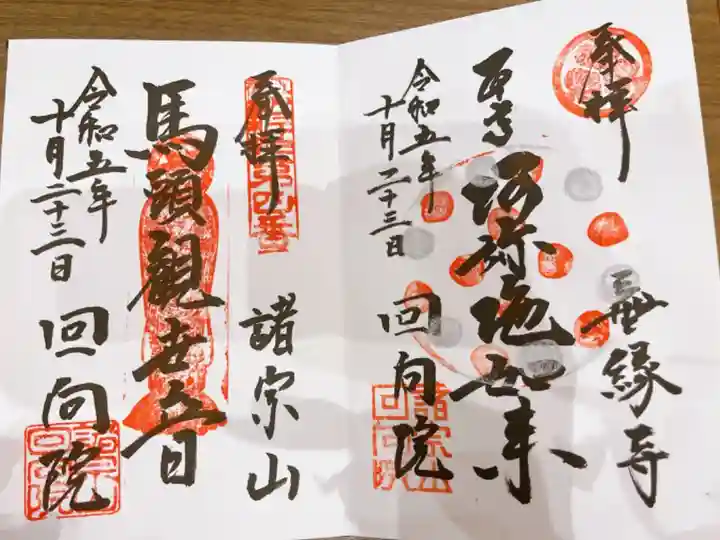 奉拝
無縁寺
本尊 阿弥陀如来
回向院
令和五年
十月二十三日
奉拝
諸宗山
馬頭観世音
回向院
令和五年
十月二十三日
諸宗山
回向院